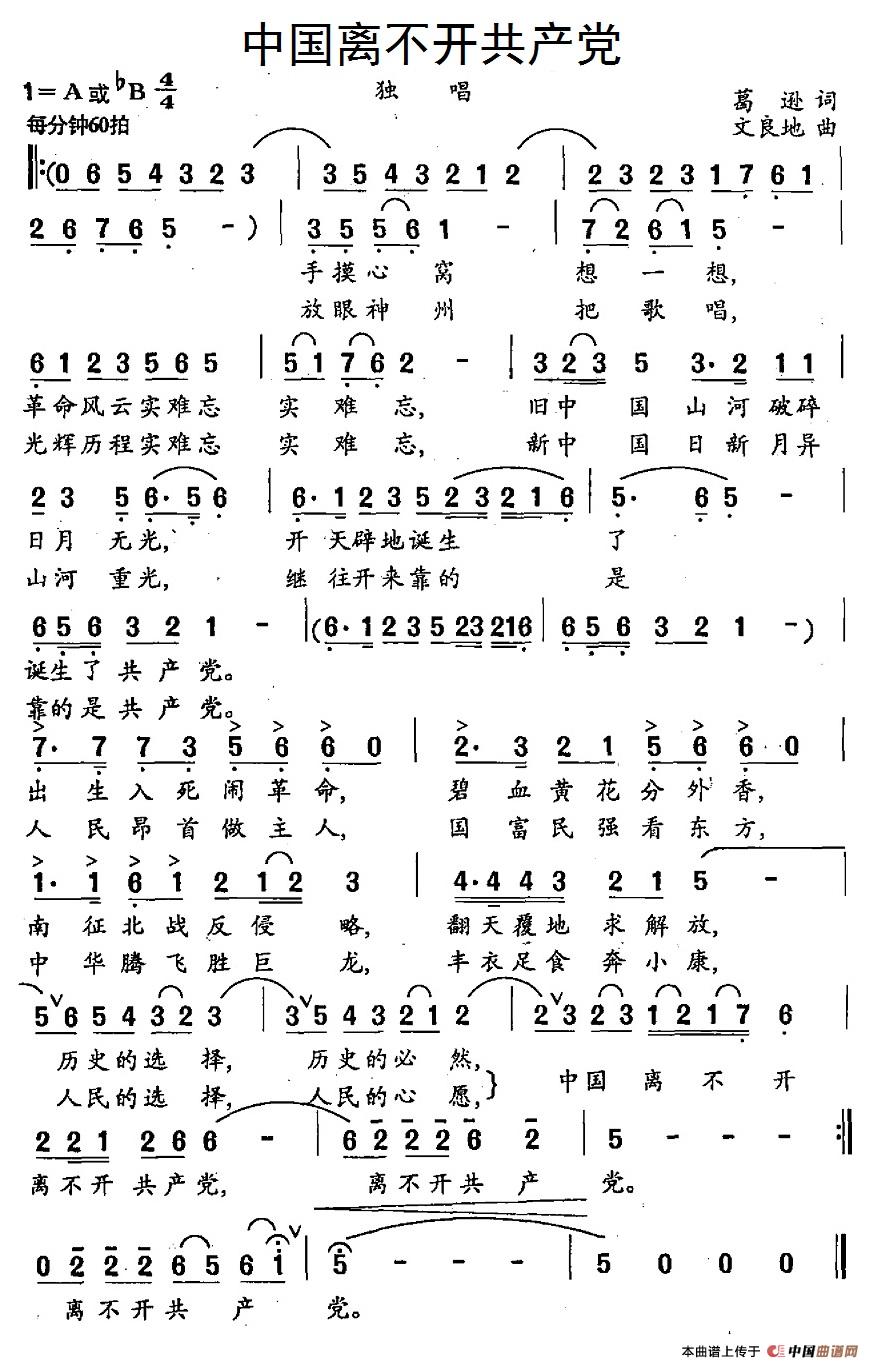 中国离不开共产党
1=A或♭B 4/4 独 唱 葛 逊 词
每分钟60拍 文良地 曲
0 6 5 4 3 2 3 | 3 5 4 3 2 1 2 | 2 3 2 3 1 7 6 1 |
2 6 7 6 5 - ) | 3 5 5 6 1 - | 7 2 6 1 5 - |
手摸心窝 想一想,
放眼神州 把歌唱,
6 1 2 3 5 6 5 | 5 1 7 6 2 - | 3 2 3 5 3· 2 1 1 |
革命风云实难忘 实难忘, 旧中国山河破碎
光辉历程实难忘 实难忘, 新中国日新月异
2 3 5 6· 5 6 | 6· 1 2 3 5 2 3 2 1 6 | 5· 6 5 - |
日月无光, 开天辟地诞生 了
山河重光, 继往开来靠的 是
6 5 6 3 2 1 - | ( 6· 1 2 3 5 23 216 | 6 5 6 3 2 1 - ) |
诞生了共产党。
靠的是共产党。
7· 7 7 3 5 6 6 0 | 2· 3 2 1 5 6 6 0 |
出生入死闹革命, 碧血黄花分外香,
人民昂首做主人, 国富民强看东方,
1· 1 6 1 2 1 2 3 | 4· 4 4 3 2 1 5 - |
南征北战反侵略, 翻天覆地求解放,
中华腾飞胜巨龙, 丰衣足食奔小康,
5 6 5 4 3 2 3 | 3 5 4 3 2 1 2 | 2 3 2 3 1 2 1 7 6 |
历史的选择, 历史的必然,
人民的选择, 人民的心愿, } 中国离不开
2 2 1 2 6 6 - | 6 2 2 2 6 2 | 5 - - - :|
离不开共产党, 离不开共产 党。
0 2 2 2 6 5 6 1 | 5 - - - | 5 0 0 0 ‖
离不开共产 党。
本曲谱上传于 中国曲谱网